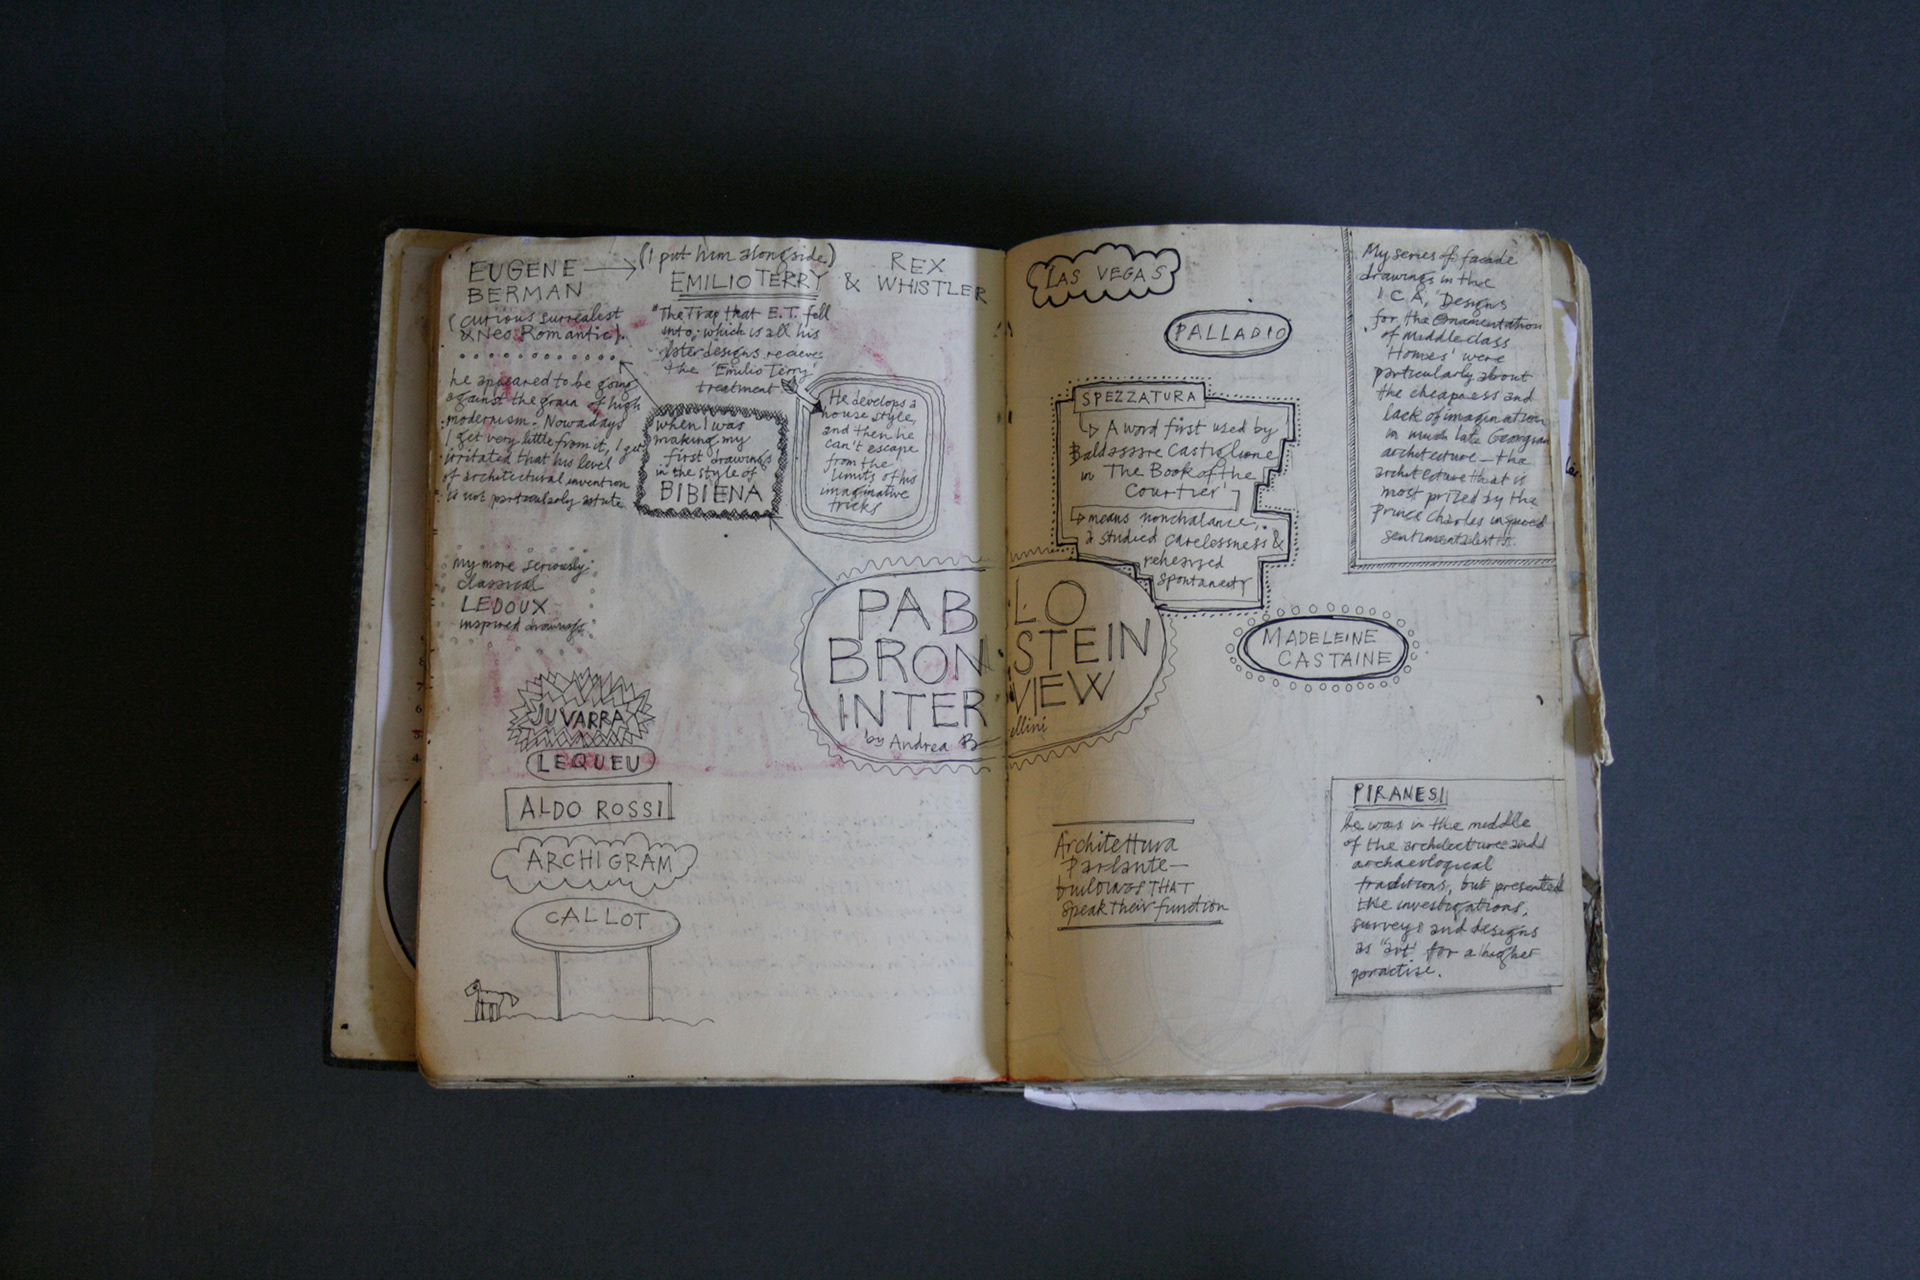 EUGENE
BERMAN
(curious surrealist
& Neo Romantic).
(I put him alongside)
EMILIO TERRY
& REX
WHISTLER
"The Trap that E.T. fell
into, which is all his
later designs recieve
the 'Emilio Terry'
treatment
he appeared to be going
against the grain of high
modernism. Nowadays
I get very little from it, I get
irritated that his level
of architectural invention
is not particularly astute
when I was
making my
first drawings
in the style of
BIBIENA
He develops a
house style,
and then he
can't escape
from the
limits of his
imaginative
tricks
my more seriously
classical
LEDOUX
inspired drawings
JUVARRA
LEQUEU
ALDO ROSSI
ARCHIGRAM
CALLOT
PABLO
BRONSTEIN
INTERVIEW
by Andrea Bellini
LAS VEGAS
PALLADIO
SPEZZATURA
A word first used by
Baldassare Castiglione
in 'The Book of the
Courtier'
means nonchalance,
a studied carelessness &
rehearsed
spontaneity
My series of facade
drawings in the
I C A, 'Designs
for the Ornamentation
of Middleclass
Homes' were
particularly about
the cheapness and
lack of imagination
in much late Georgian
architecture – the
architecture that is
most prized by the
Prince Charles inspired
sentimentalists.
MADELEINE
CASTAINE
Architettura
Parlante –
buildings THAT
speak their function
PIRANESI
he was in the middle
of the architecture and
archaeological
traditions, but presented
the investigations,
surveys and designs
as 'art' for a higher
practise.